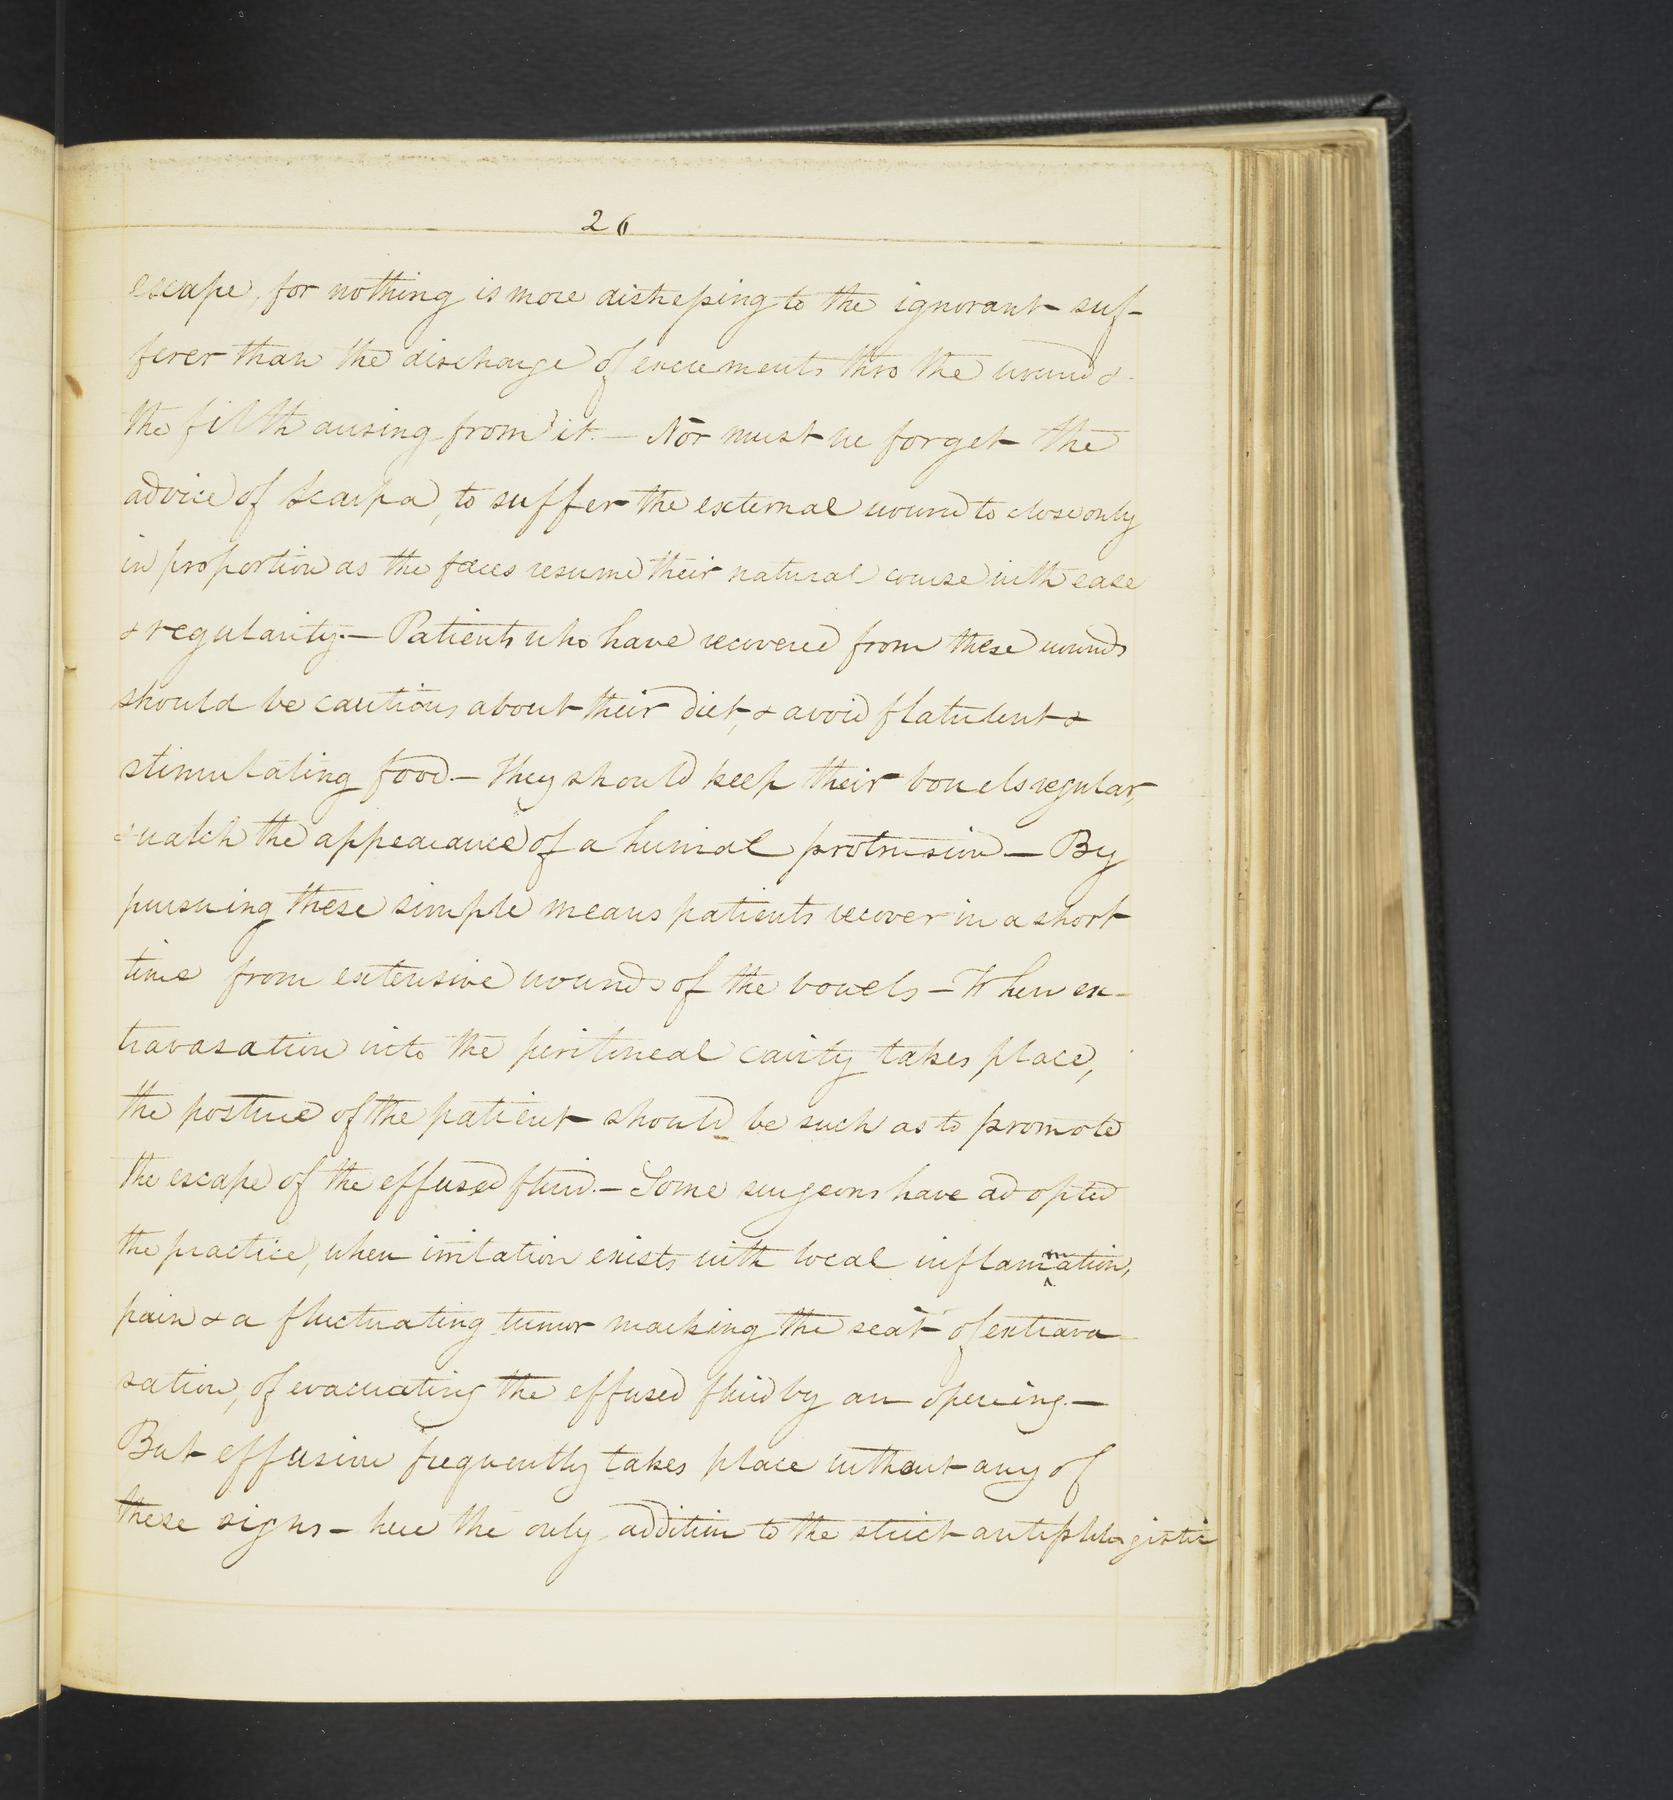 26
escape, for nothing is more distressing to the ignorant suf-
ferer than the discharge of excrements thro the wound &
the filth arising from it. — Nor must we forget the
advice of Scarpa, to suffer the external wound to close only
in proportion as the fæces resume their natural course with ease
& regularity. — Patients who have recovered from these wounds
should be cautious about their diet, & avoid flatulent &
stimulating food. — They should keep their bowels regular,
& watch the appearance of a hernial protrusion — By
pursuing these simple means patients recover in a short
time from extensive wounds of the bowels — When ex-
travasation into the peritineal cavity takes place,
the posture of the patient should be such as to promote
the escape of the effused fluid. — Some surgeons have adopted
the practice, when irritation exists with local inflammation,
pain & a fluctuating tumor marking the seat of extrava-
sation, of evacuating the effused fluid by an opening. —
But effusion frequently takes place without any of
these signs — here the only addition to the strict antiphlogistic